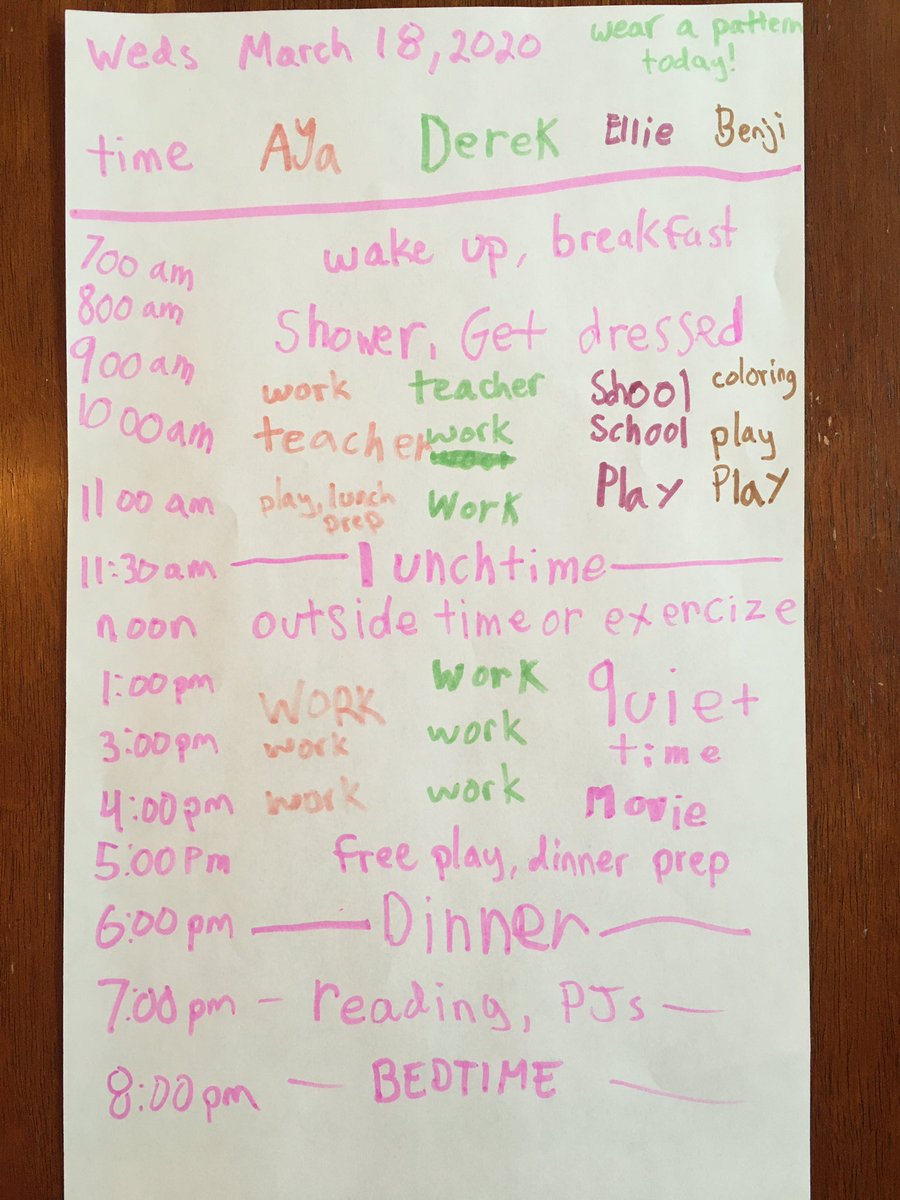 Weds March 18, 2020 wear a pattern
today!
time Aya Derek Ellie Benji
700 am wake up, breakfast
800 am Shower, Get dressed
900 am work teacher School coloring
1000 am teacher work School play
11 00 am play, lunch prep work Play Play
11:30 am lunchtime
noon outside time or exercize
1:00 pm WORK work quiet
3:00 pm work work time
4:00 pm work work Movie
5:00 Pm free play, dinner prep
6:00 pm Dinner
7:00 pm - reading, PJs
8:00 pm BEDTIME